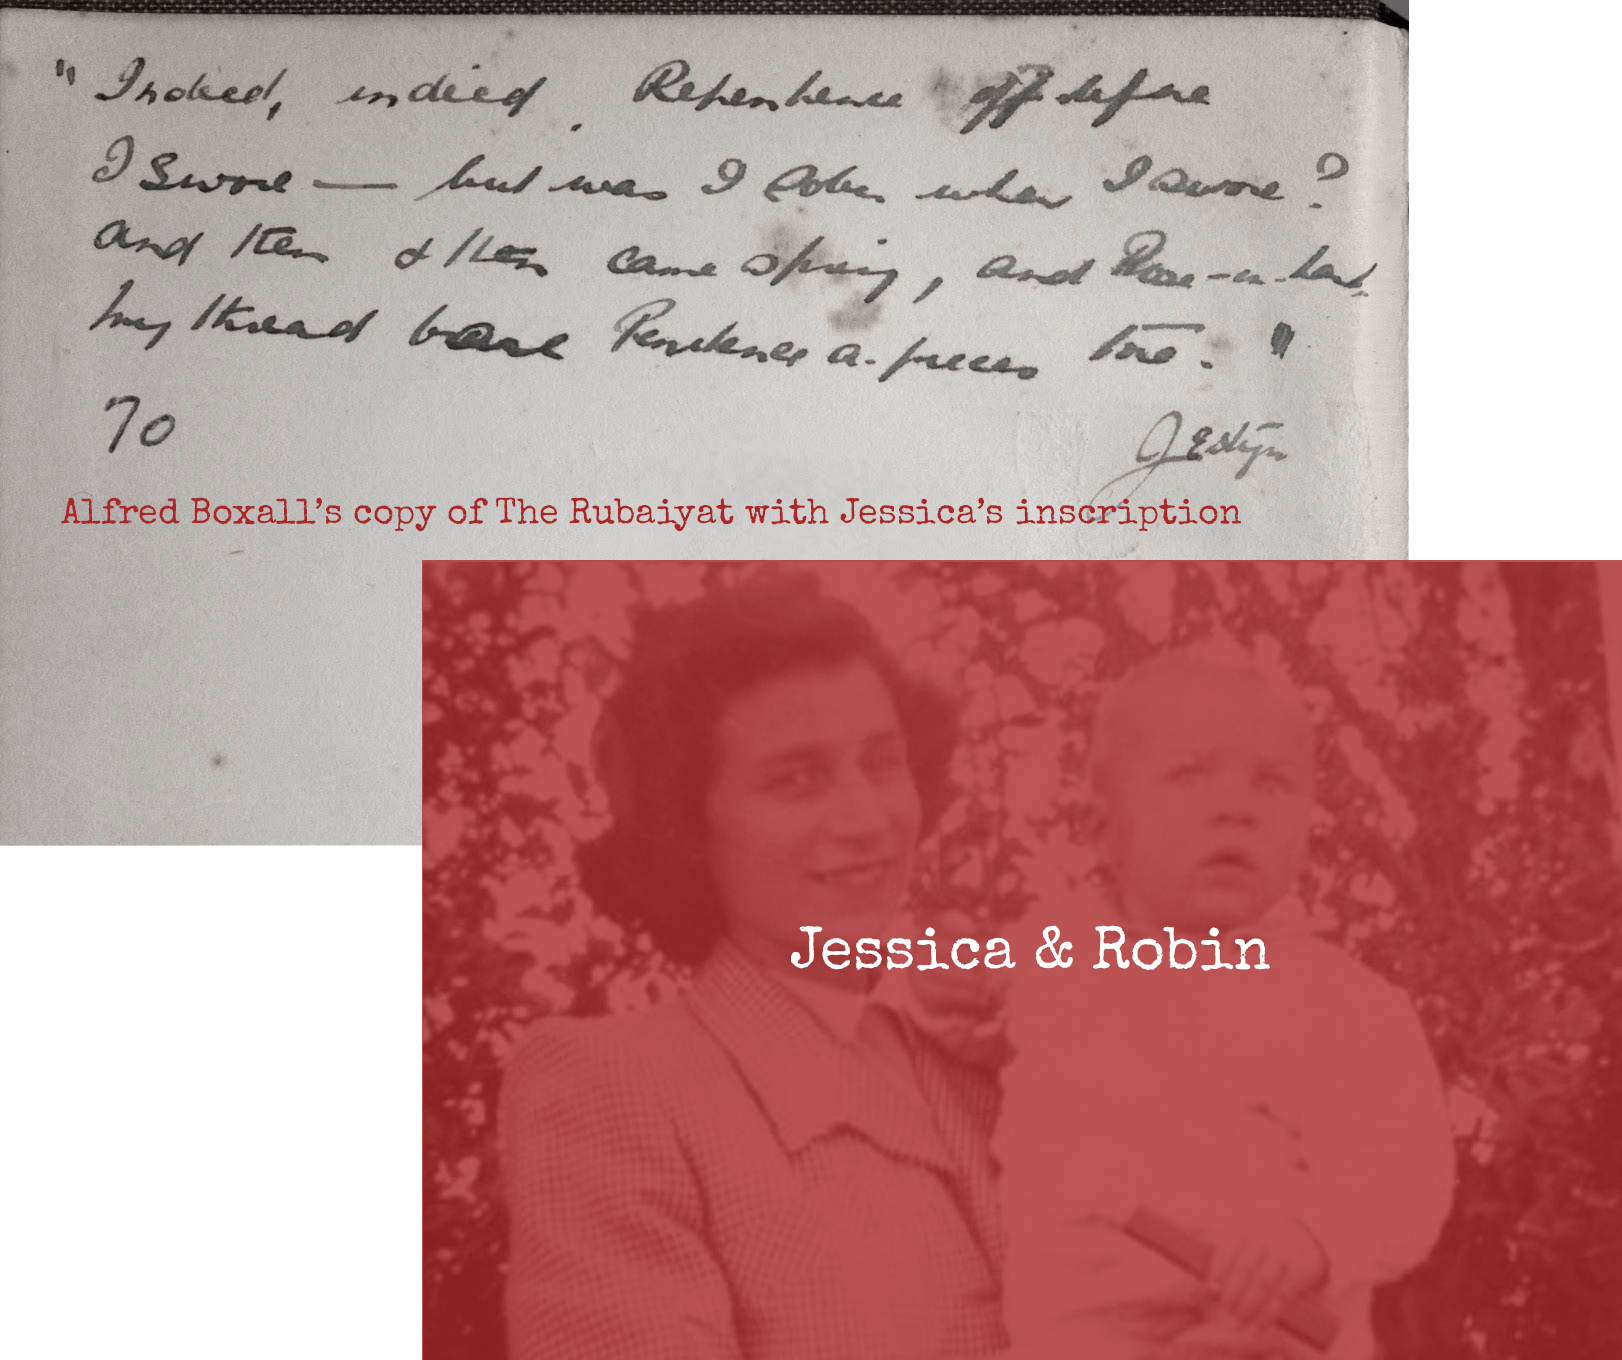 "Indeed, indeed. Repentance oft before
I swore — but was I sober when I swore?
and then & then came spring, and Rose-in-hand
my thread bare Penitence a-pieces tore."
70
JEstyn
Alfred Boxall’s copy of The Rubaiyat with Jessica’s inscription
Jessica & Robin